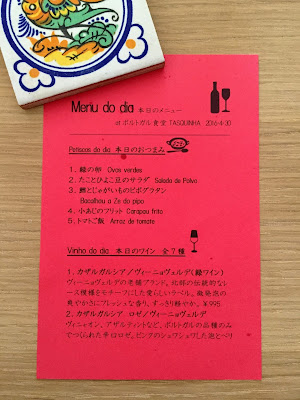 Menu do dia 本日のメニュー
at ポルトガル食堂 TASQUINHA 2016.4.30
Petiscos do dia 本日のおつまみ
1．緑の卵 Ovos verdes
2．たことひよこ豆のサラダ Salada de Polvo
3．鱈とじゃがいものピポグラタン
Bacalhau a Ze do pipo
4．小あじのフリット Carapau frito
5．トマトご飯 Arroz de tomate
Vinho do dia 本日のワイン 全７種
1．カザルガルシア／ヴィーニョヴェルデ(緑ワイン)
ヴィーニョヴェルデの老舗ブランド。北部の伝統的なレ
ース模様をモチーフにした愛らしいラベル。微発泡の
爽やかさにフレッシュな香り、すっきり軽やか。￥995
2．カザルガルシア ロゼ／ヴィーニョヴェルデ
ヴィニャオン、アザルテイントなど、ポルトガルの品種のみ
でつくられた辛口ロゼ。ピンクのシュワシュワした泡と